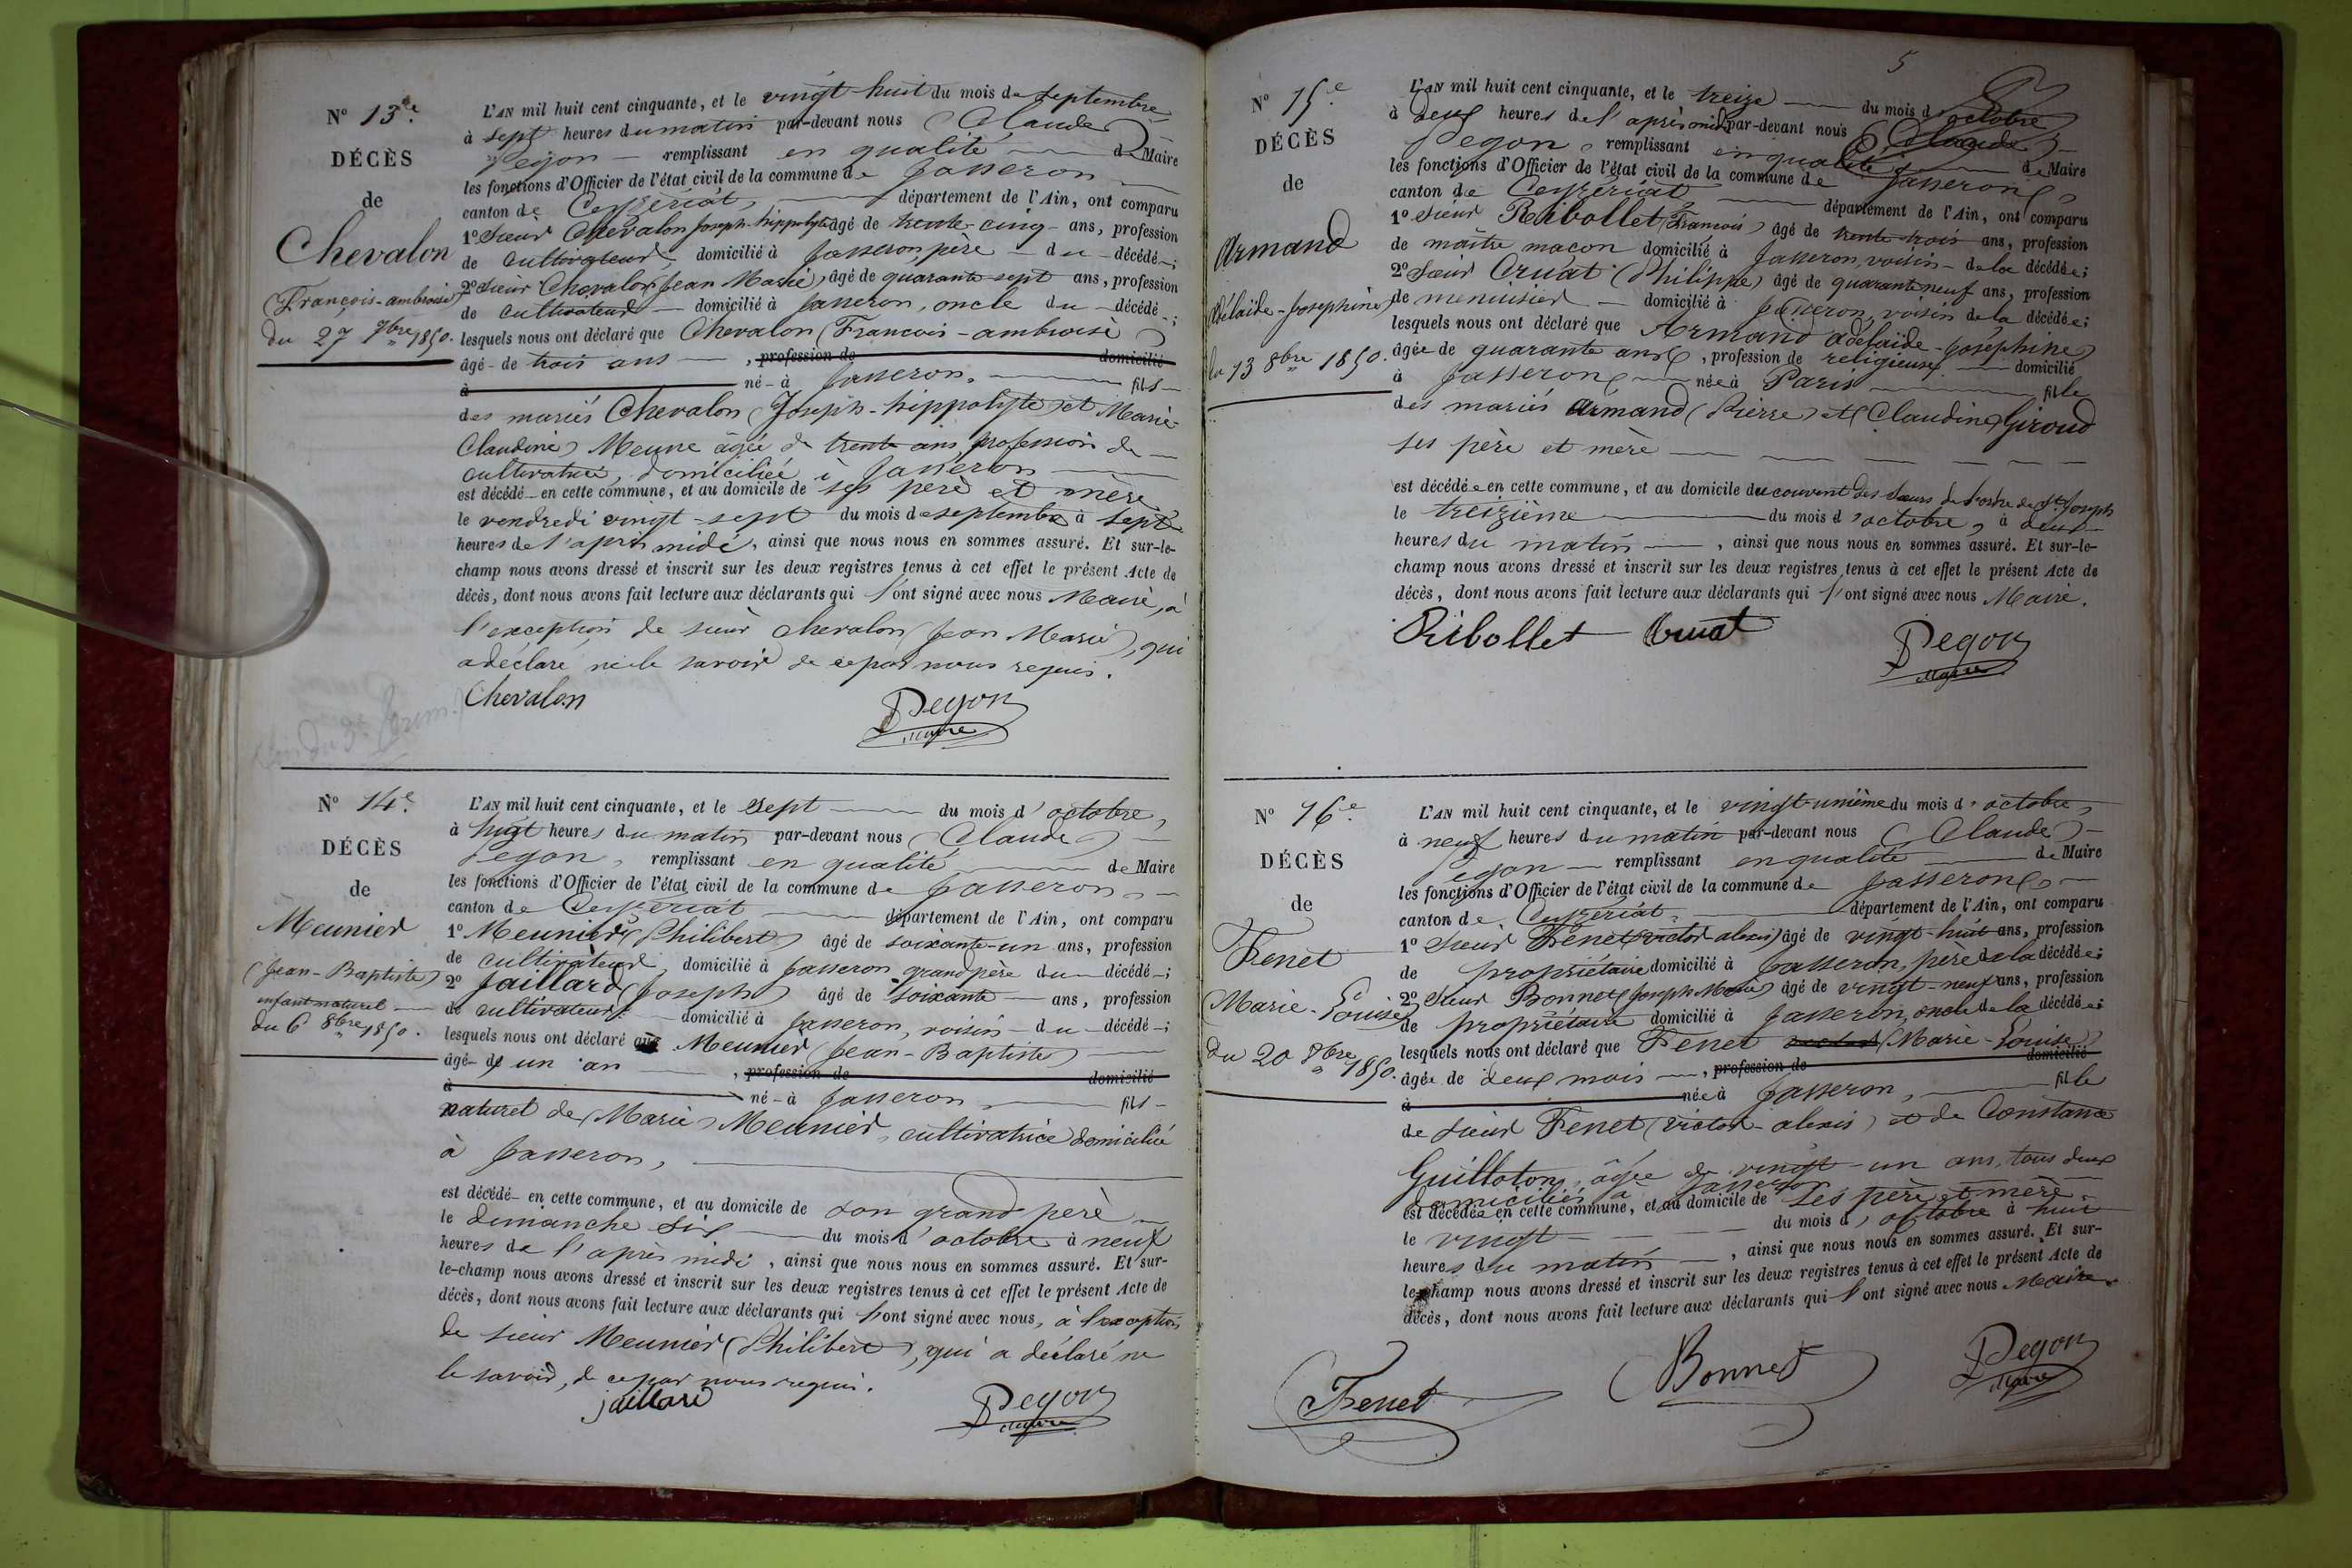 Nº 13e.
DÉCÈS
de
Chevalon
(François-ambroise)
du 27 7bre 1850.
L'AN mil huit cent cinquante, et le vingt-huit du mois de septembre
à sept heures du matin par-devant nous (Claude)
Pegon remplissant en qualité de Maire
les fonctions d'Officier de l'état civil de la commune de Jasseron
canton de Ceyzériat, département de l'Ain, ont comparu
1º Sieur Chevalon Joseph-hippolyte âgé de trente-cinq ans, profession
de cultivateur, domicilié à Jasseron, père du décédé;
2º Sieur Chevalon (Jean Marie), âgé de quarante-sept ans, profession
de cultivateur domicilié à Jasseron, oncle du décédé;
lesquels nous ont déclaré que Chevalon (François-ambroise)
âgé de trois ans, profession de domicilié
à né à Jasseron, fils
des mariés Chevalon (Joseph-hippolyte) et Marie
Claudine) Meune âgée de trente ans, profession de
cultivatrice, domiciliée à Jasseron
est décédé en cette commune, et au domicile de ses père et mère
le vendredi vingt-sept du mois de septembre à sept
heures de l'après midi, ainsi que nous nous en sommes assuré. Et sur-le-
champ nous avons dressé et inscrit sur les deux registres tenus à cet effet le présent Acte de
décès, dont nous avons fait lecture aux déclarants qui l'ont signé avec nous Maire, à
l'exception de sieur Chevalon (Jean Marie), qui
a déclaré ne le savoir de ce par nous requis.
Chevalon Pegon
Maire
Nº 14e.
DÉCÈS
de
Meunier
(Jean-Baptiste)
enfant naturel
du 6 8bre 1850.
L'AN mil huit cent cinquante, et le sept du mois d'octobre,
à huit heures du matin par-devant nous (Claude)
Pegon, remplissant en qualité de Maire
les fonctions d'Officier de l'état civil de la commune de Jasseron
canton de Ceyzériat département de l'Ain, ont comparu
1º Meunier (Philibert) âgé de soixante-un ans, profession
de cultivateur, domicilié à Jasseron, grand père du décédé;
2º Jaillard (Joseph) âgé de soixante ans, profession
de cultivateur domicilié à Jasseron, voisin du décédé;
lesquels nous ont déclaré que Meunier (Jean-Baptiste)
âgé de un an, profession de domicilié
à né à Jasseron fils
naturel de (Marie) Meunier, cultivatrice domiciliée
à Jasseron,
est décédé en cette commune, et au domicile de son grand père
le dimanche six du mois d'octobre à neuf
heures de l'après midi, ainsi que nous nous en sommes assuré. Et sur-
le-champ nous avons dressé et inscrit sur les deux registres tenus à cet effet le présent Acte de
décès, dont nous avons fait lecture aux déclarants qui l'ont signé avec nous, à l'exception
de sieur Meunier (Philibert), qui a déclaré ne
le savoir, de ce par nous requis.
jaillard Pegon
Maire
5
Nº 15e.
DÉCÈS
de
Armand
Adélaïde-Josephine)
le 13 8bre 1850.
L'AN mil huit cent cinquante, et le treize du mois d'octobre
à deux heures de l'après midi par-devant nous (Claude)
Pegon, remplissant en qualité de Maire
les fonctions d'Officier de l'état civil de la commune de Jasseron
canton de Ceyzériat département de l'Ain, ont comparu
1º Sieur Ribollet (François) âgé de trente-trois ans, profession
de maître maçon domicilié à Jasseron, voisin de la décédée;
2º Sieur Cruat (Philippe) âgé de quarante neuf ans, profession
de menuisier domicilié à Jasseron, voisin de la décédée;
lesquels nous ont déclaré que Armand adélaïde-Joséphine)
âgée de quarante ans, profession de religieuse domicilié
à Jasseron née à Paris fille
des mariés Armand (Pierre) et (Claudine) Giroud
ses père et mère
est décédée en cette commune, et au domicile du couvent des Sœurs de l'ordre de St Joseph
le treizième du mois d'octobre, à deux
heures du matin, ainsi que nous nous en sommes assuré. Et sur-le-
champ nous avons dressé et inscrit sur les deux registres tenus à cet effet le présent Acte de
décès, dont nous avons fait lecture aux déclarants qui l'ont signé avec nous Maire.
Ribollet Cruat Pegon
Maire
Nº 16e.
DÉCÈS
de
Fenet
(Marie-Louise)
du 20 8bre 1850.
L'AN mil huit cent cinquante, et le vingt-unième du mois d'octobre,
à neuf heures du matin par-devant nous (Claude)
Pegon remplissant en qualité de Maire
les fonctions d'Officier de l'état civil de la commune de Jasseron
canton de Ceyzériat, département de l'Ain, ont comparu
1º Sieur Fenet (victor alexis) âgé de vingt-huit ans, profession
de propriétaire domicilié à Jasseron, père de la décédée;
2º Sieur Bonnet (Joseph Marie) âgé de vingt-neuf ans, profession
de propriétaire domicilié à Jasseron, oncle de la décédée;
lesquels nous ont déclaré que Fenet (Marie-Louise)
âgée de deux mois, profession de domicilié
à née à Jasseron, fille
de sieur Fenet (victor-alexis) et de Constance
Guilloton, âgée de vingt-un ans, tous deux
domiciliés à Jasseron
est décédée en cette commune, et au domicile de ses père et mère
le vingt du mois d'octobre à huit
heures du matin, ainsi que nous nous en sommes assuré. Et sur-
le-champ nous avons dressé et inscrit sur les deux registres tenus à cet effet le présent Acte de
décès, dont nous avons fait lecture aux déclarants qui l'ont signé avec nous Maire.
Fenet Bonnet Pegon
Maire